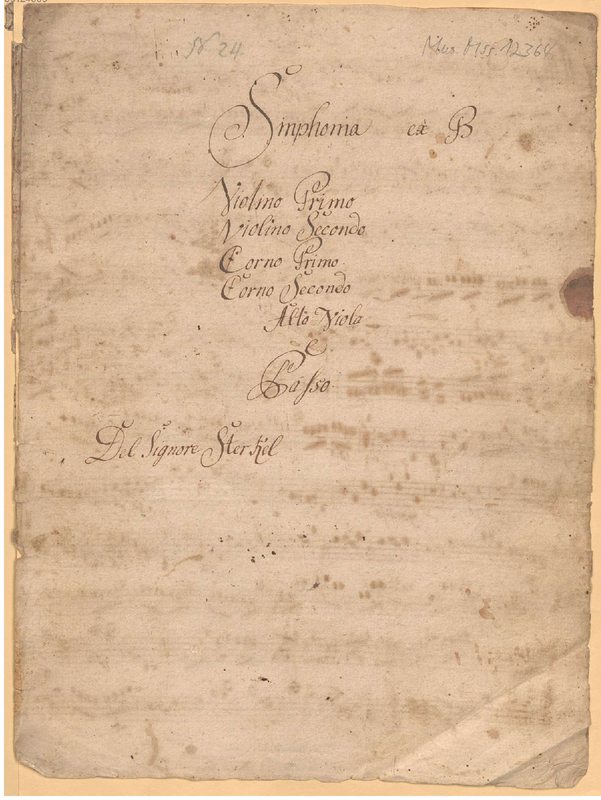 N 24.
Mus. Mss. 12364
Sinphonia ex B
Violino Primo
Violino Secondo
Corno Primo
Corno Secondo
Alto Viola
e
Basso
Del Signore Sterkel